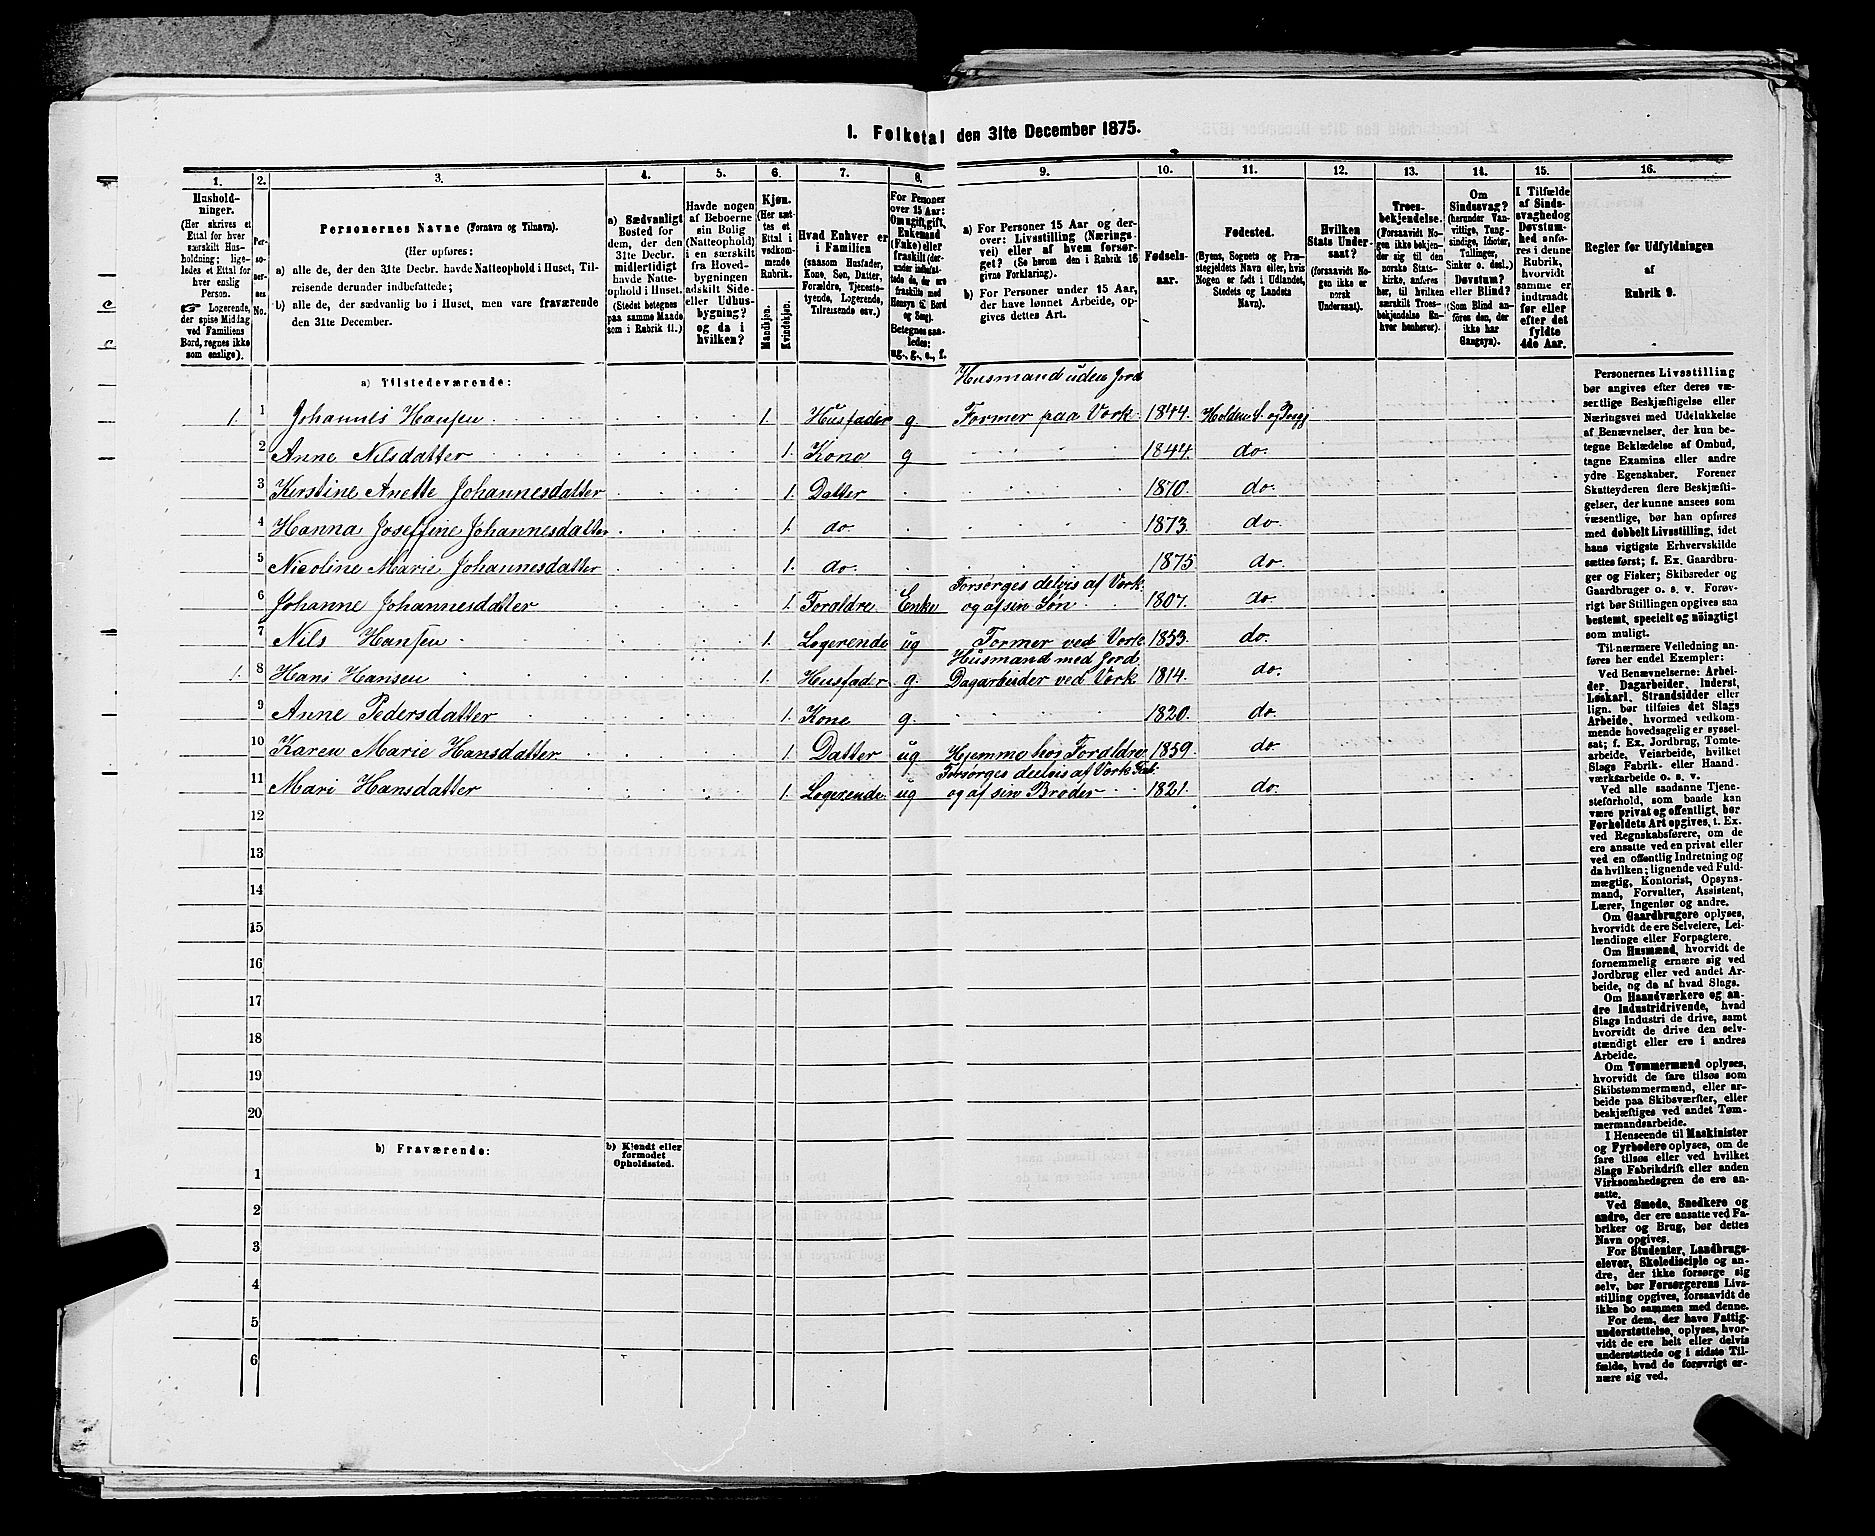 1. Folketal den 31te December 1875.
1.
2.
3.
4.
5.
6.
7.
8.
9.
10.
11.
12.
13.
14.
15.
16.
Hushold-
ninger.
(Her skrives et
Ettal for hver
særskilt Hus-
holdning; lige-
ledes et Ettal for
hver enslig
Person.
☞ Logerende,
der spise Middag
ved Familiens
Bord, regnes ikke
som enslige).
Per-
so-
ner-
nes
No.
Personernes Navne (Fornavn og Tilnavn).
(Her opføres:
a) alle de, der den 31te Decbr. havde Natteophold i Huset, Til-
reisende derunder indbefattede;
b) alle de, der sædvanlig bo i Huset, men vare fraværende
den 31te December.
a) Sædvanligt
Bosted for
dem, der den
31te Decbr.
midlertidigt
havde Natte-
ophold i Huset.
(Stedet betegnes
paa samme Maade
som i Rubrik 11.)
Havde nogen
af Beboerne
sin Bolig
(Natteophold)
i en særskilt
fra Hoved-
bygningen
adskilt Side-
eller Udhus-
bygning?
og da i
hvilken?
Kjøn.
(Her sæt-
tes et
Ettal i
vedkom-
mende
Rubrik.
Mandkjøn.
Kvindekjøn.
Hvad Enhver er
i Familien
(saasom Husfader,
Kone, Søn, Datter,
Forældre, Tjeneste-
tyende, Logerende,
Tilreisende osv.)
For Personer
over 15 Aar:
Om ugift, gift,
Enkemand
(Enke) eller
fraskilt (der-
under indbefat-
tede de, der ere
fraskilte med
Hensyn til Bord
og Seng).
Betegnes saa-
ledes:
ug., g., e., f.
a) For Personer 15 Aar og der-
over: Livsstilling (Nærings-
vei) eller af hvem forsør-
get? (Se herom den i Rubrik 16
givne Forklaring).
b) For Personer under 15 Aar,
der have lønnet Arbeide, op-
gives dettes Art.
Fødsels-
aar.
Fødested.
(Byens, Sognets og Præ-
stegjeldets Navn eller, hvis
Nogen er født i Udlandet,
Stedets og Landets
Navn).
Hvilken
Stats Under-
saat?
(forsaavidt No-
gen ikke er
norsk
Undersaat).
Troes-
bekjendelse.
(Forsaavidt No-
gen ikke bekjen-
der sig til den
norske Stats-
kirke, anføres
her, til hvilken
særskilt Troes-
bekjendelse En-
hver henhører).
Om
Sindssvag?
(herunder Van-
vittige, Tung-
sindige, Idioter,
Tullinger,
Sinker o. desl.)
Døvstum?
eller Blind?
(Som Blind an-
føres den, der
ikke har
Gangsyn).
I Tilfælde
af Sinds-
svaghed og
Døvstum-
hed anfø-
res i denne
Rubrik,
hvorvidt
samme er
indtraadt
før eller
efter det
fyldte
4de Aar.
Regler før Udfyldningen
af
Rubrik 9.
a) Tilstedeværende:
Husmand uden Jord
1. 1 Johannes Hansen 1. Husfader g Former paa Værk 1844. Holden S. og Prgj
2 Anne Nilsdatter 1. Kone g 1844. do.
3 Kerstine Anette Johannesdatter 1. Datter 1870. do.
4 Hanna Joseffine Johannesdatter 1. do. 1873. do.
5 Nicoline Marie Johannesdatter 1. do. 1875 do.
Forsørges delvis af Værk
6 Johanne Johannesdatter 1. Foraldre Enke og af sin Søn 1807. do.
7 Nils Hansen 1. Logerende ug Former ved Værk 1853. do.
Husmand med Jord
1. 8 Hans Hansen 1. Husfader g. Dagarbeider ved Værk 1814. do.
9 Anne Pedersdatter 1. Kone g. 1820. do.
10 Karen Marie Hansdatter 1. Datter ug Hjemme hos Foraldre 1859. do.
Forsørges deelvis af Værk
11 Mari Hansdatter 1. Logerende ug og af sin Broder 1821. do.
12
13
14
15
16
17
18
19
20
b) Fraværende:
b) Kjendt eller
formodet
Opholdssted.
1
2
3
4
5
6
Personernes Livsstilling
bør angives efter deres væ-
sentlige Beskjæftigelse eller
Næringsvei med Udelukkelse
af Benævnelser, der kun be-
tegne Beklædelse af Ombud,
tagne Examina eller andre
ydre Egenskaber. Forener
Skatteyderen flere Beskjæfti-
gelser, der kunne ansees som
væsentlige, bør han opføres
med dobbelt Livsstilling, idet
hans vigtigste Erhvervskilde
sættes først; f. Ex. Gaardbru-
ger og Fisker; Skibsreder og
Gaardbruger o. s. v. Forøv-
rigt bør Stillingen opgives saa
bestemt, specielt og nöiagtigt
som muligt.
Til nærmere Veiledning an-
føres her endel Exempler:
Ved Benævnelserne: Arbei-
der, Dagarbeider, Inderst,
Løskarl, Strandsidder eller
lign. bør tilføies det Slags
Arbeide, hvormed vedkom-
mende hovedsagelig er syssel-
sat; f. Ex. Jordbrug, Tomte-
arbeide, Veiarbeide, hvilket
Slags Fabrik- eller Haand-
værksarbeide o. s. v.
Ved alle saadanne Tjene-
steforhold, som baade kan
være privat og offentligt, bør
Forholdets Art opgives, t. Ex.
ved Regnskabsførere, om de
ere ansatte ved en privat eller
ved en offentlig Indretning og
da hvilken; lignende ved Fuld-
mægtig, Kontorist, Opsyns-
mand, Forvalter, Assistent,
Lærer, Ingeniør og andre.
Om Gaardbrugere oplyses,
hvorvidt de ere Selveiere, Lei-
lændinge eller Forpagtere.
Om Husmænd, hvorvidt de
fornemmelig ernære sig ved
Jordbrug eller ved andet Ar-
beide, og da af hvad Slags.
Om Haandværkere og an-
dre Industridrivende, hvad
Slags Industri de drive, samt
hvorvidt de drive den selv-
stændigt eller ere i andres
Arbeide.
Om Tømmermænd oplyses,
hvorvidt de fare tilsøs som
Skibstømmermænd, eller ar-
beide paa Skibsværfter, eller
beskjæftiges ved andet Tøm-
mermandsarbeide.
I Henseende til Maskinister
og Fyrbødere oplyses, om de
fare tilsøs eller ved hvilket
Slags Fabrikdrift eller anden
Virksomhedsgren de ere an-
satte.
Ved Smede, Snedkere og
andre, der ere ansatte ved Fa-
briker og Brug, bør dettes
Navn opgives.
For Studenter, Landbrugs-
elever, Skoledisciple og an-
dre, der ikke forsørge sig
selv, bør Forsørgerens Livs-
stilling opgives, forsaavidt de
ikke bo sammen med denne.
For dem, der have Fattig-
understøttelse, oplyses, hvor-
vidt de ere helt eller delvis
understøttede og i sidste Til-
fælde, hvad de forøvrigt er-
nære sig ved.